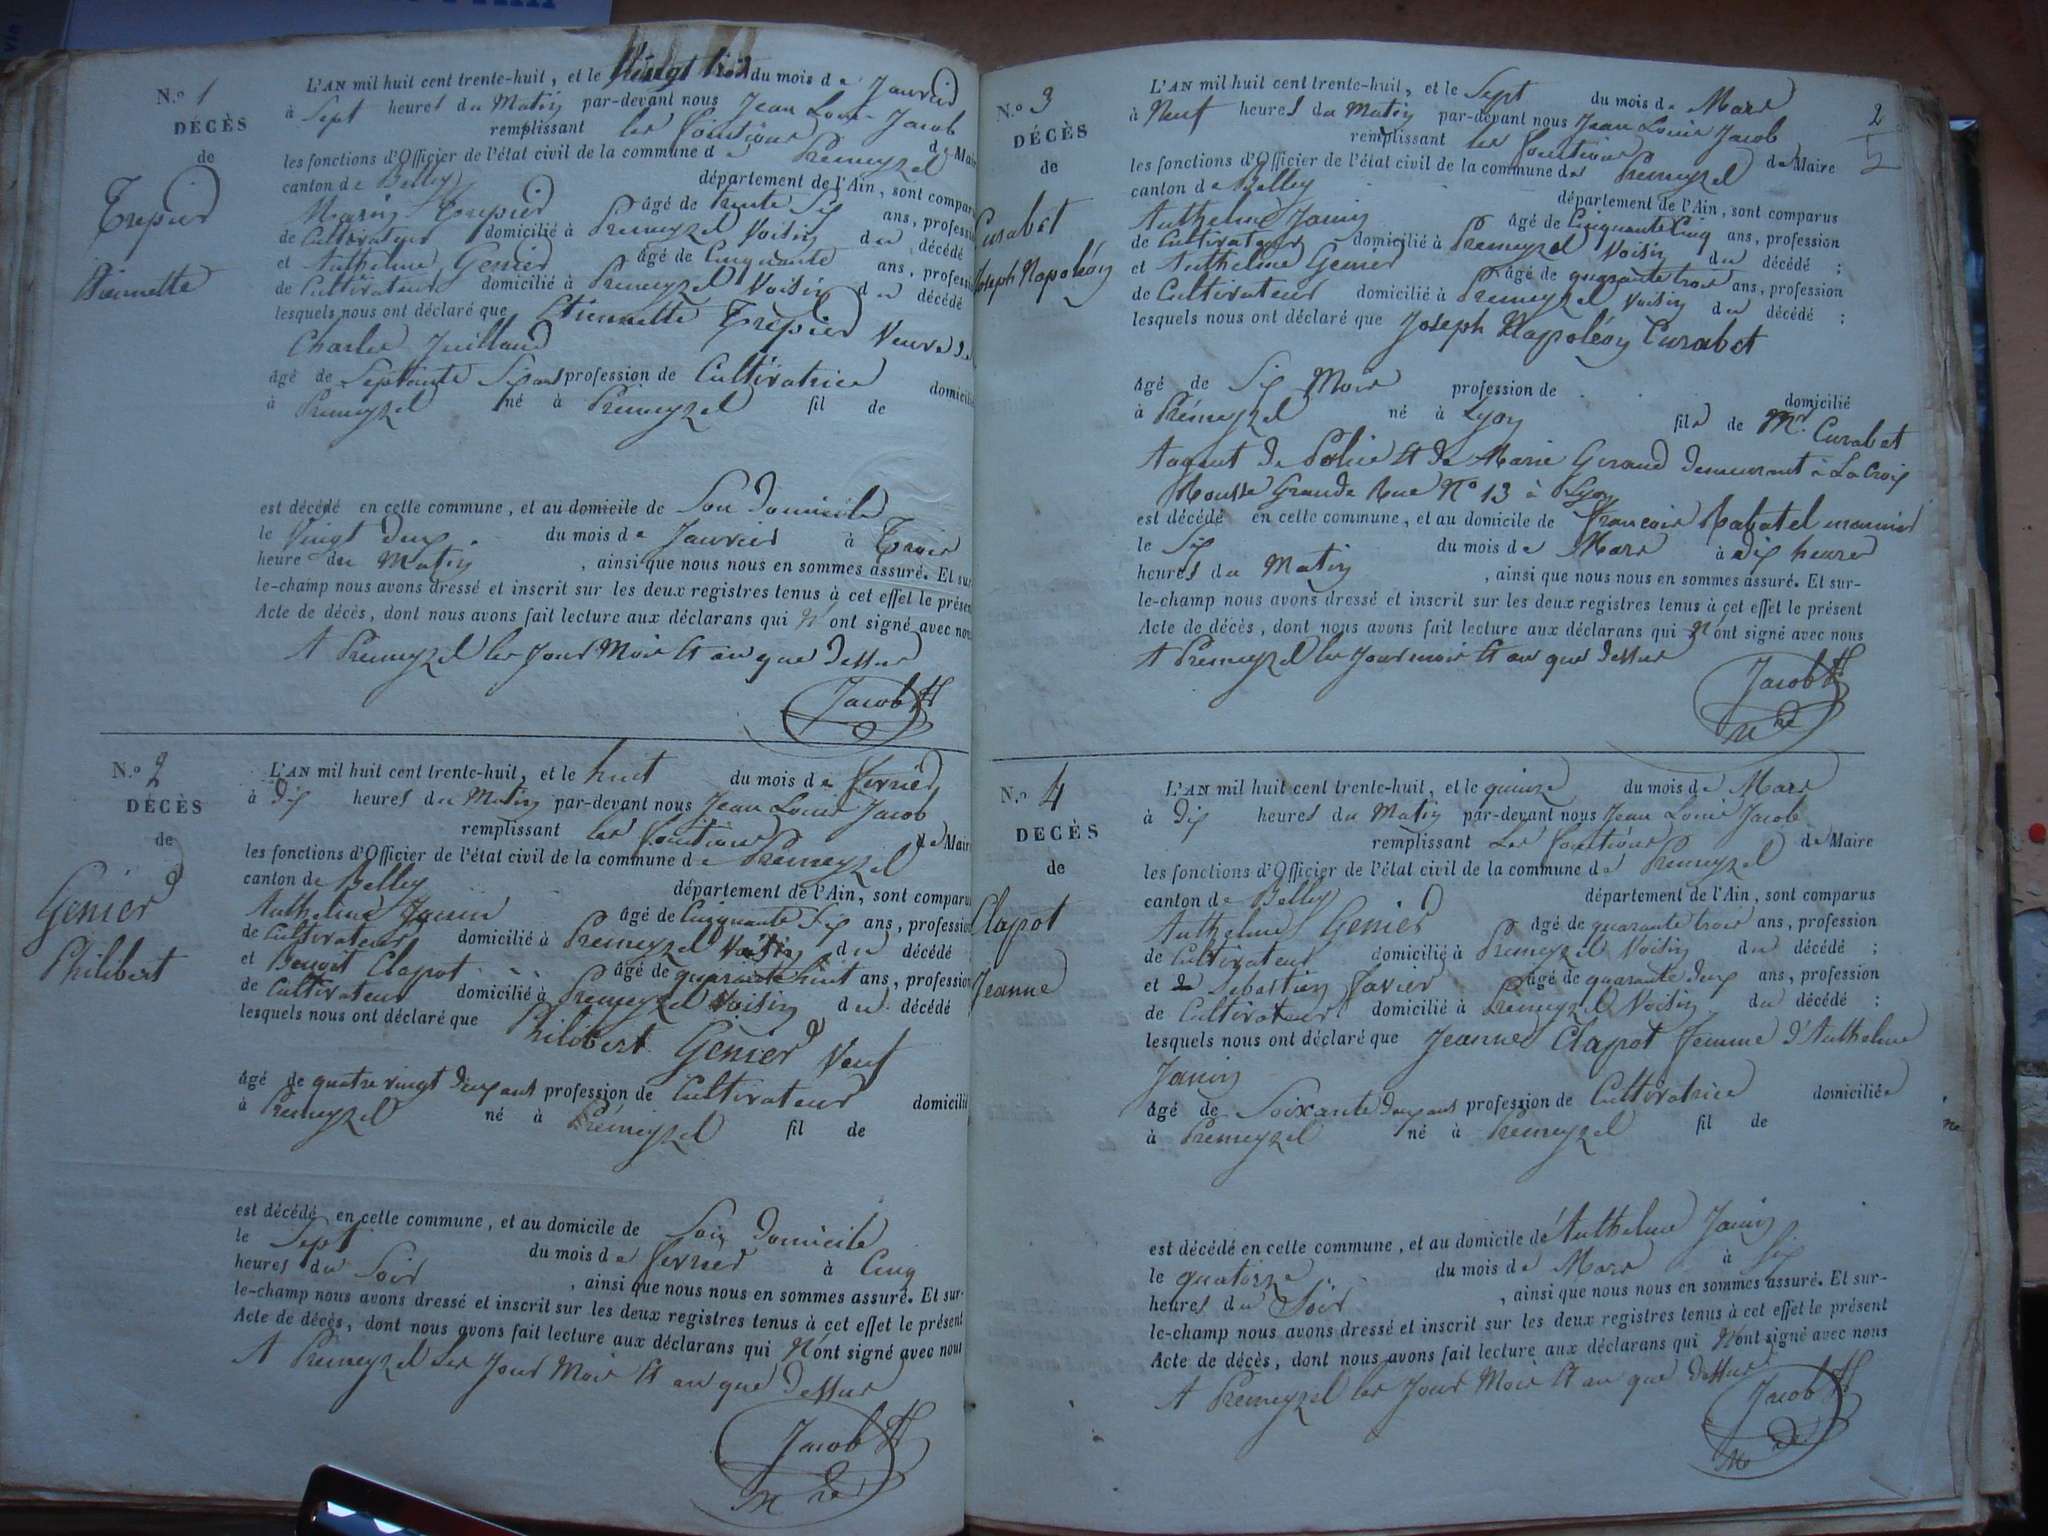 N.o 1
DÉCÈS
de
Trepier
Etiennette
L'AN mil huit cent trente-huit, et le Vingt trois du mois de Janvier
à Sept heures du Matin par-devant nous Jean Louis Jacob
remplissant les fonctions de Maire
les fonctions d'Officier de l'état civil de la commune de Premeyzel
canton de Belley département de l'Ain, sont comparus
Marin Trepier âgé de trente Six ans, profession
de Cultivateur domicilié à Premeyzel Voisin du décédé
et Anthelme Genier âgé de Cinquante ans, profession
de Cultivateur domicilié à Premeyzel Voisin du décédé
lesquels nous ont déclaré que Etiennette Trepier Veuve de
Charles Juilland
âgé de Septante Six ans profession de Cultivatrice domicilié
à Premeyzel né à Premeyzel fil de
est décédé en cette commune, et au domicile de Son domicile
le Vingt deux du mois de Janvier à Trois
heure du Matin, ainsi que nous nous en sommes assuré. Et sur-
le-champ nous avons dressé et inscrit sur les deux registres tenus à cet effet le présent
Acte de décès, dont nous avons fait lecture aux déclarans qui N'ont signé avec nous
A Premeyzel les Jour Mois et an que dessus
Jacob
N.o 2
DÉCÈS
de
Genier
Philibert
L'AN mil huit cent trente-huit, et le huit du mois de fevrier
à Dix heures du Matin par-devant nous Jean Louis Jacob
remplissant les fonctions de Maire
les fonctions d'Officier de l'état civil de la commune de Premeyzel
canton de Belley département de l'Ain, sont comparus
Anthelme Janin âgé de Cinquante Six ans, profession
de Cultivateur domicilié à Premeyzel Voisin du décédé
et Benoit Clapot âgé de quarante huit ans, profession
de Cultivateur domicilié à Premeyzel Voisin du décédé
lesquels nous ont déclaré que Philibert Genier Veuf
âgé de quatre vingt deux ans profession de Cultivateur domicilié
à Premeyzel né à Prémeyzel fil de
est décédé en cette commune, et au domicile de Son domicile
le Sept du mois de fevrier à Cinq
heures du Soir, ainsi que nous nous en sommes assuré. Et sur-
le-champ nous avons dressé et inscrit sur les deux registres tenus à cet effet le présent
Acte de décès, dont nous avons fait lecture aux déclarans qui N'ont signé avec nous
A Premeyzel les Jour Mois et an que dessus
Jacob
M re
2
N.o 3
DÉCÈS
de
Curabet
Joseph Napoléon
L'AN mil huit cent trente-huit, et le Sept du mois de Mars
à Neuf heures du Matin par-devant nous Jean Louis Jacob
remplissant les fonctions de Maire
les fonctions d'Officier de l'état civil de la commune de Premeyzel
canton de Belley département de l'Ain, sont comparus
Anthelme Janin âgé de Cinquante Cinq ans, profession
de Cultivateur domicilié à Premeyzel Voisin du décédé ;
et Anthelme Genier âgé de quarante trois ans, profession
de Cultivateur domicilié à Premeyzel Voisin du décédé ;
lesquels nous ont déclaré que Joseph Napoléon Curabet
âgé de Six Mois profession de domicilié
à Prémeyzel né à Lyon fils de Mr. Curabet
Aagent de Police et de Marie Giraud demeurant à La Croix
Rousse Grande Rue No 13 à Lyon
est décédé en cette commune, et au domicile de François Rabatel
le Six du mois de Mars à Dix heures
heures du Matin, ainsi que nous nous en sommes assuré. Et sur-
le-champ nous avons dressé et inscrit sur les deux registres tenus à cet effet le présent
Acte de décès, dont nous avons fait lecture aux déclarans qui N'ont signé avec nous
A Premeyzel les Jour mois et an que dessus
Jacob
M re
N.o 4
DECÈS
de
Clapot
Jeanne
L'AN mil huit cent trente-huit, et le quinze du mois de Mars
à Dix heures du Matin par-devant nous Jean Louis Jacob
remplissant Les fonctions de Maire
les fonctions d'Officier de l'état civil de la commune de Premeyzel
canton de Belley département de l'Ain, sont comparus
Anthelme Genier âgé de quarante trois ans, profession
de Cultivateur domicilié à Premeyzel Voisin du décédé ;
et Sebastien Favier âgé de quarante deux ans, profession
de Cultivateur domicilié à Premeyzel Voisin du décédé ;
lesquels nous ont déclaré que Jeanne Clapot femme d'Anthelme
Janin
âgé de Soixante deux ans profession de Cultivatrice domiciliée
à Premeyzel né à Premeyzel fil de
est décédé en cette commune, et au domicile de Anthelme Janin
le quatorze du mois de Mars à Six
heures du Soir, ainsi que nous nous en sommes assuré. Et sur-
le-champ nous avons dressé et inscrit sur les deux registres tenus à cet effet le présent
Acte de décès, dont nous avons fait lecture aux déclarans qui N'ont signé avec nous
A Premeyzel les Jour Mois et an que dessus
Jacob
M re